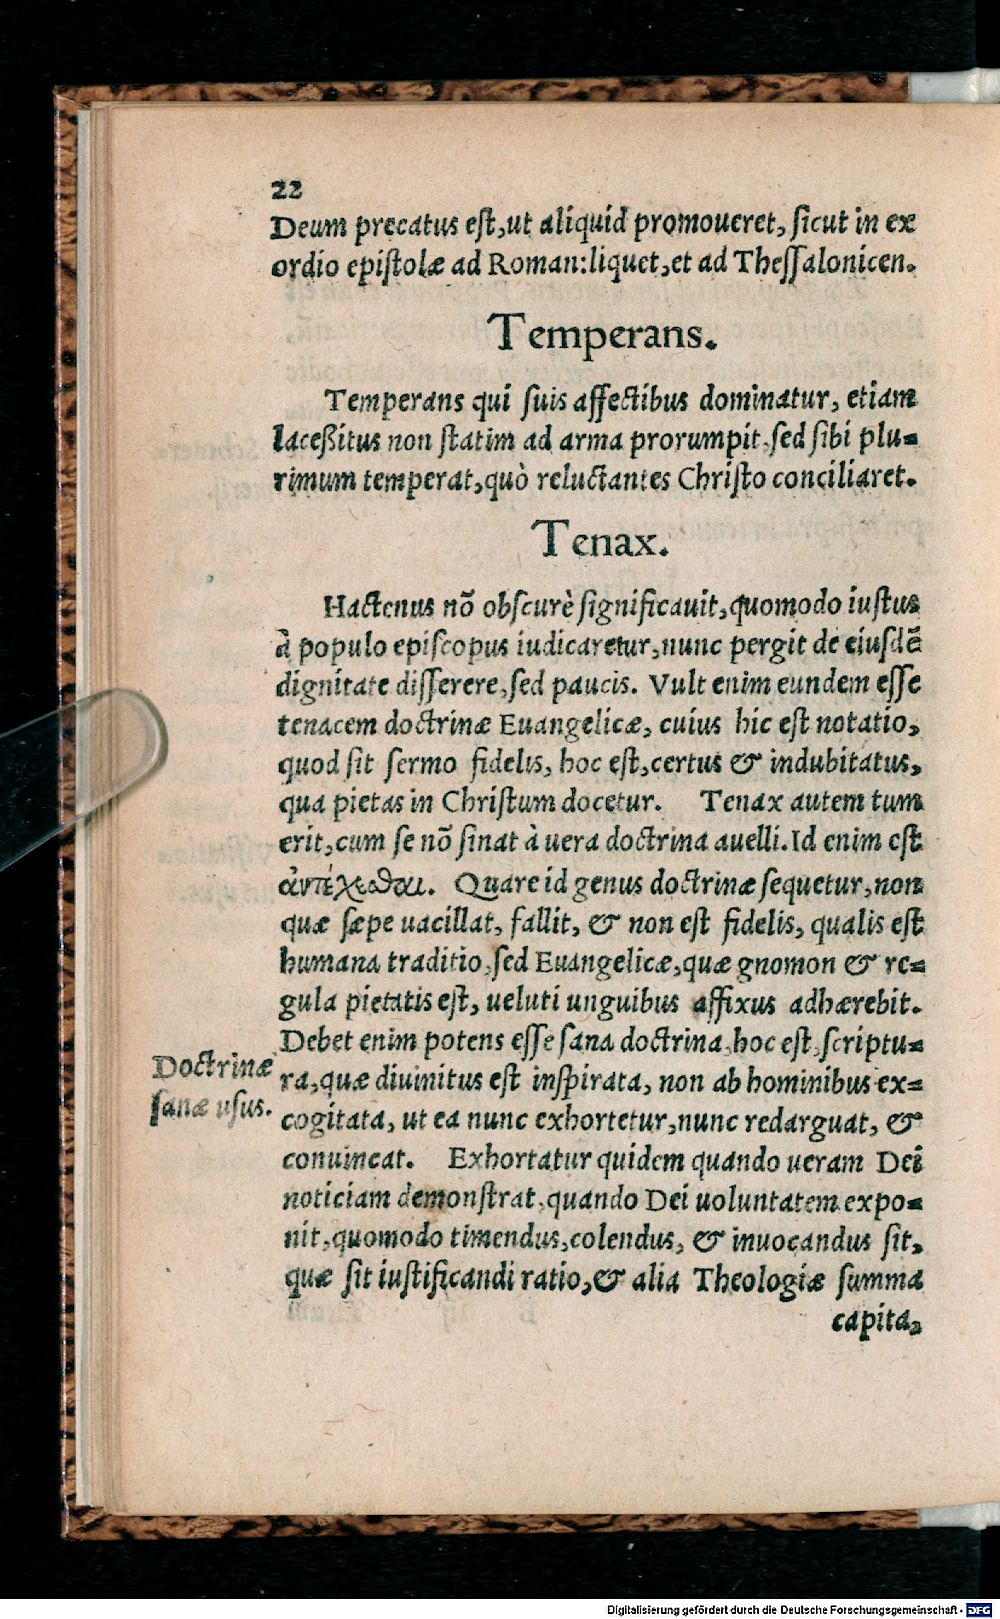 22
Deum precatus eſt,ut aliquid promoueret, ſicut in ex
ordio epiſtolæ ad Roman:liquet,et ad Theſſalonicen.
Temperans.
Temperans qui ſuis affectibus dominatur, etiam
laceßitus non ſtatim ad arma prorumpit,ſed ſibi plu-
rimum temperat,quò reluctantes Chriſto conciliaret.
Tenax.
Hactenus nõ obſcurè ſignificauit,quomodo iuſtus
à populo epiſcopus iudicaretur,nunc pergit de eiuſdẽ
dignitate differere,ſed paucis. Vult enim eundem eſſe
tenacem doctrinæ Euangelicæ, cuius hic eſt notatio,
quod ſit ſermo fidelis, hoc eſt,certus & indubitatus,
qua pietas in Chriſtum docetur. Tenax autem tum
erit,cum ſe nõ ſinat à uera doctrina auelli.Id enim eſt
ἀντέχεσθαι. Quare id genus doctrinæ ſequetur,non
quæ ſæpe uacillat, fallit, & non eſt fidelis, qualis eſt
humana traditio,ſed Euangelicæ,quæ gnomon & re-
gula pietatis eſt, ueluti unguibus affixus adhærebit.
Debet enim potens eſſe ſana doctrina,hoc eſt,ſcriptu-
Doctrinæ
ſanæ uſus.
ra,quæ diuinitus eſt inſpirata, non ab hominibus ex-
cogitata, ut ea nunc exhortetur,nunc redarguat, &
conuincat. Exhortatur quidem quando ueram Dei
noticiam demonſtrat,quando Dei uoluntatem expo-
nit,quomodo timendus,colendus, & inuocandus ſit,
quæ ſit iuſtificandi ratio,& alia Theologiæ ſumma
capita,
Digitalisierung gefördert durch die Deutsche Forschungsgemeinschaft - DFG